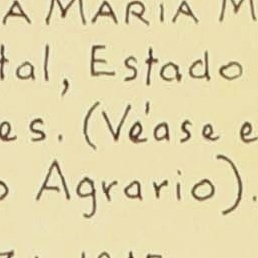 A MARIA M
tal, Estado
es. (Véase e
o Agrario).